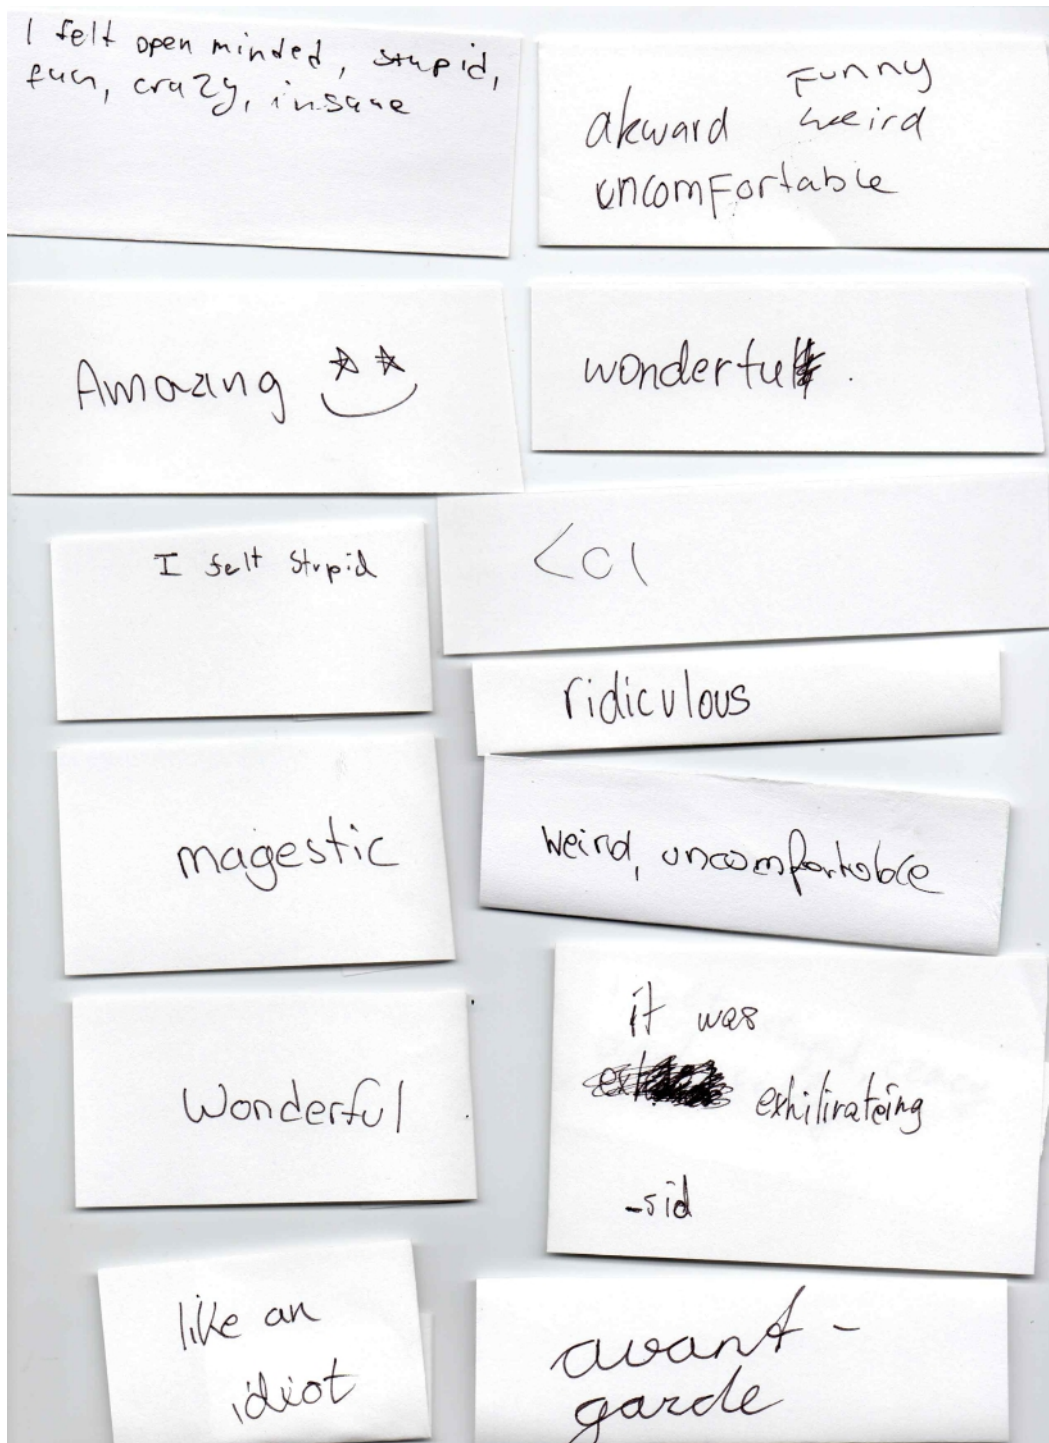 I felt open minded, stupid,
fun, crazy, insane
Funny
akward weird
uncomfortable
Amazing
wonderful.
I felt stupid
ridiculous
magestic
weird, uncomfortable
Wonderful
it was
exhilirateing
-sid
like an
idiot
avant-
garde